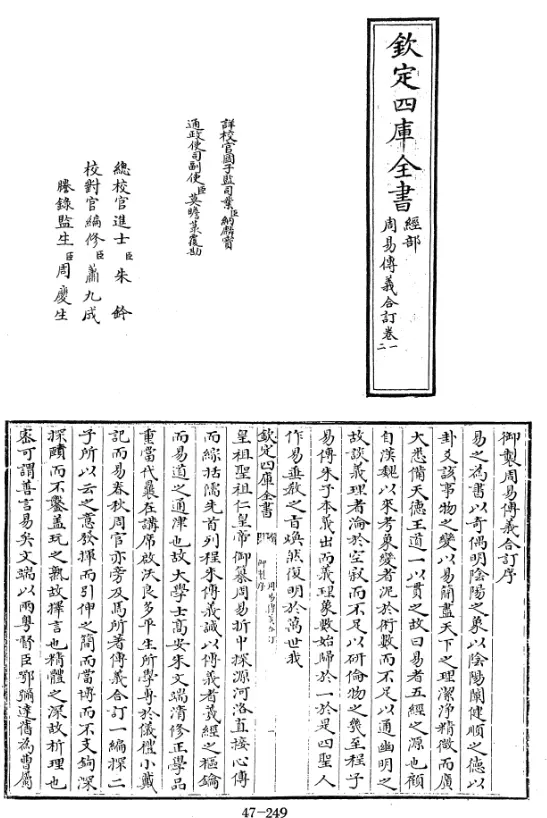 欽定四庫全書
經部
周易傳義合訂卷一
二
詳校官國子監司業臣納麟寶
通政使司副使臣莫瞻菉覆勘
總校官進士臣朱鈐
校對官編修臣蕭九成
謄錄監生臣周慶生
御製周易傳義合訂序
易之為書以奇偶明陰陽之象以陰陽闡健順之德以
卦爻該事物之變以易簡盡天下之理潔淨精微而廣
大悉備天德王道一以貫之故曰易者五經之源也顧
自漢魏以來考象變者泥於術數而不足以通幽明之
故談義理者淪於空寂而不足以研倫物之幾至程子
易傳朱子本義出而義理象數始歸於一於是四聖人
作易垂教之旨煥然復明於萬世我
欽定四庫全書
御製序
周易傳義合訂
皇祖聖祖仁皇帝御纂周易折中探源河洛直接心傳
而綜括儒先首列程朱傳義誠以傳義者羲經之樞鑰
而易道之通津也故大學士高安朱文端清修正學品
重當代曩在講席啟沃良多平生所學專於儀禮小戴
記而易春秋周官亦旁及焉所著傳義合訂一編探二
子所以云之意發揮而引伸之簡而當博而不支鉤深
探賾而不鑿蓋玩之熟故擇言也精體之深故析理也
密可謂善言易矣文端以兩粵督臣鄂彌達舊為曹屬
47-249